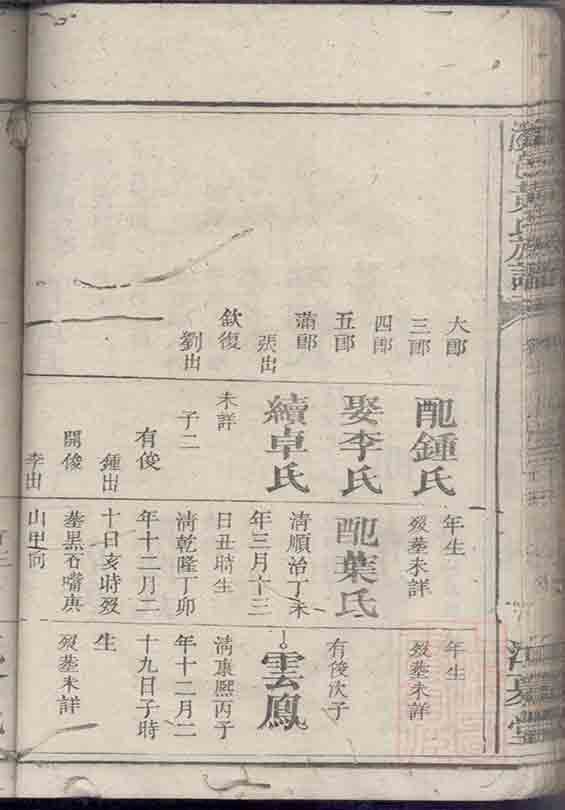 黃氏族譜
大郎
三郎
四郎
五郎
滿郎
張出
欽復
劉出
配鍾氏
娶李氏
續卓氏
未詳
子二
有俊
鍾出
開俊
李出
年生
歿塟未詳
配葉氏
清順治丁未
年三月十三
日丑時生
清乾隆丁卯
年十二月二
十日亥時歿
塟黑石嘴庚
山甲向
年生
歿塟未詳
有俊次子
雲鳳
清康熙丙子
年十二月二
十九日子時
生
歿塟未詳
江夏堂